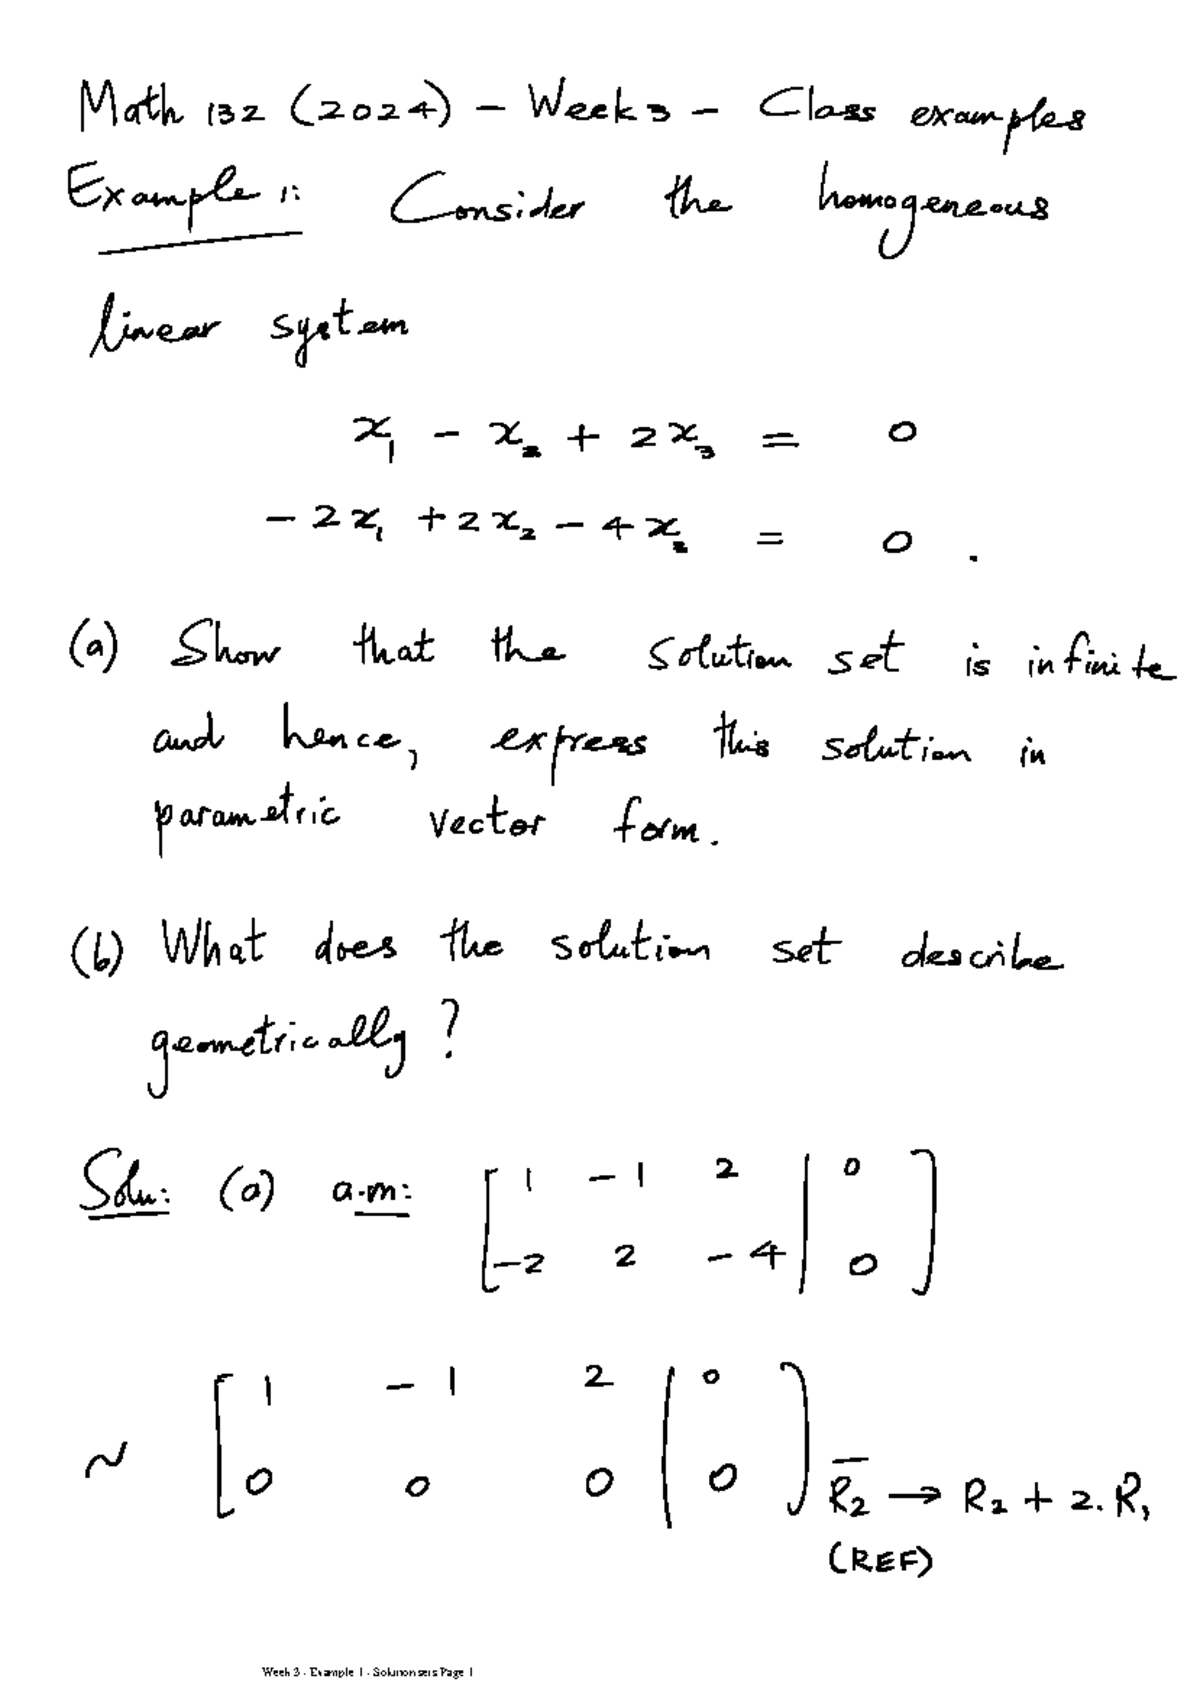 Math 132 (2024) - Week 3 - Class examples
Example 1: Consider the homogeneous
linear system
x₁ - x₂ + 2x₃ = 0
-2x₁ + 2x₂ - 4x₃ = 0.
(a) Show that the solution set is infinite
and hence, express this solution in
parametric vector form.
(b) What does the solution set describe
geometrically?
Soln: (a) a.m: [ 1 -1 2 | 0 ]
[ -2 2 -4 | 0 ]
~ [ 1 -1 2 | 0 ]
[ 0 0 0 | 0 ] R₂ → R₂ + 2.R₁
(REF)
Week 3 - Example 1 - Solution sets Page 1